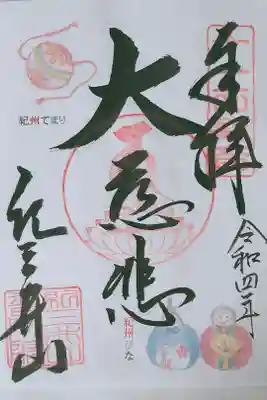 奉拝
令和四年
大慈悲
紀三井山
紀州てまり
紀州びな